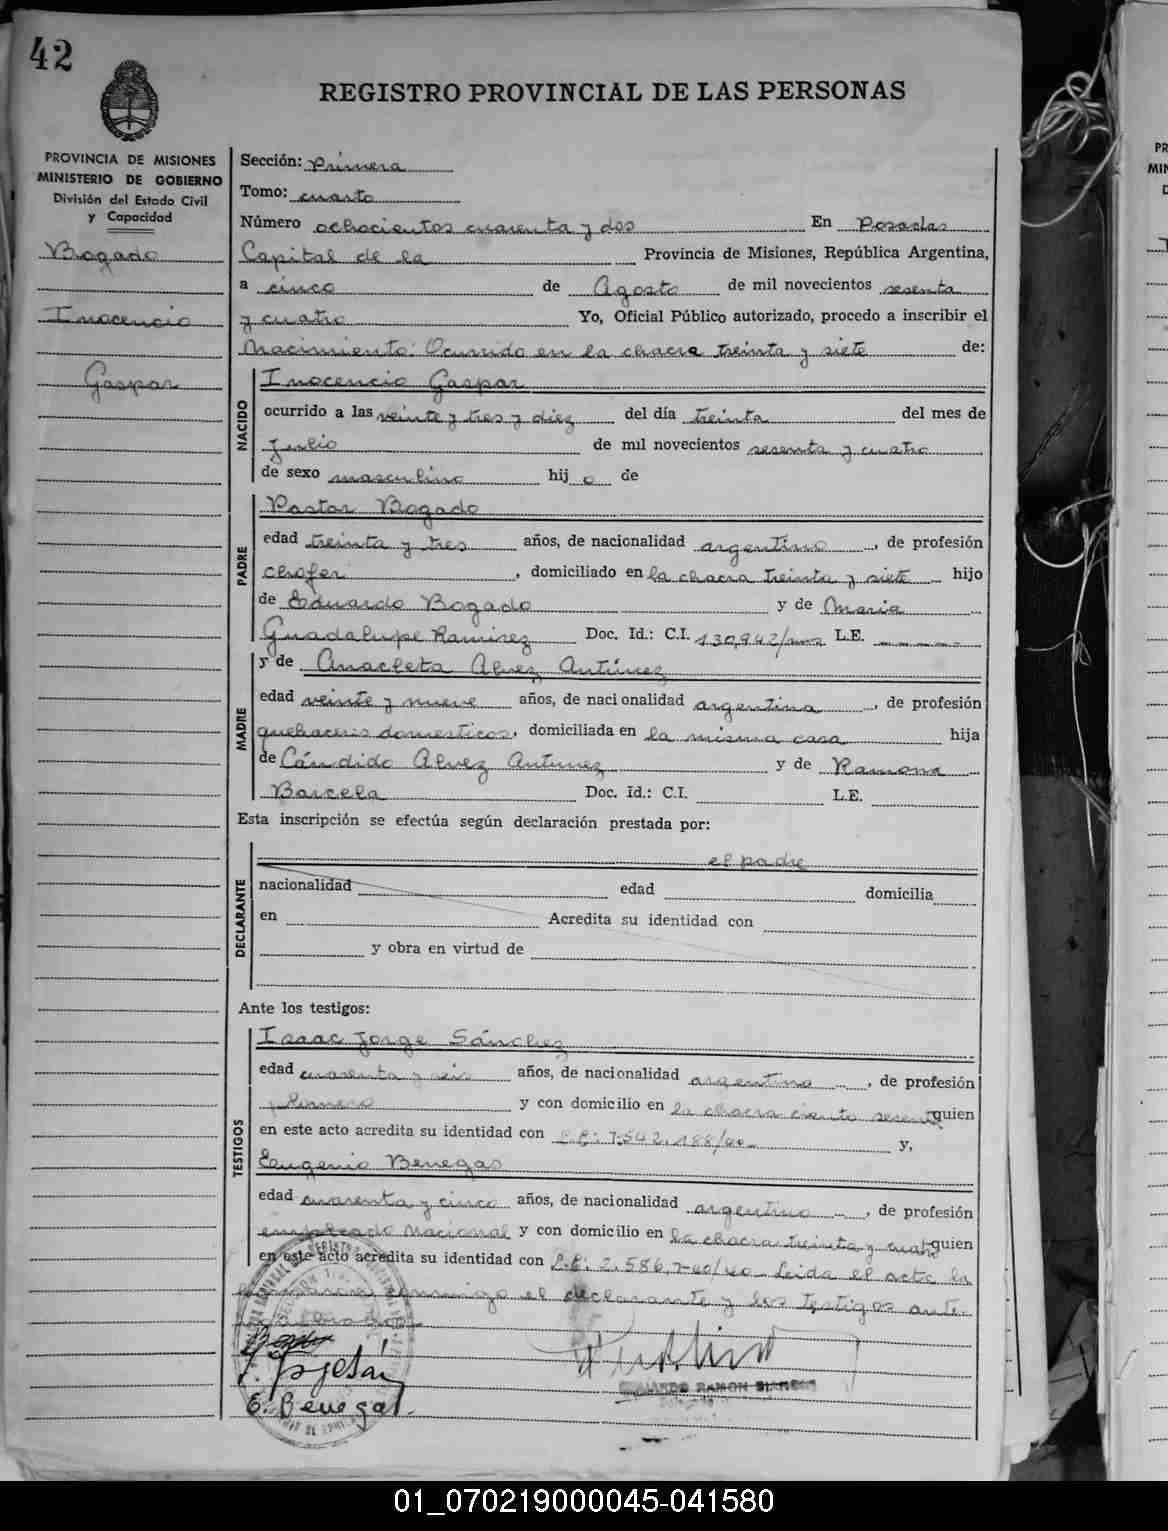 42
REGISTRO PROVINCIAL DE LAS PERSONAS
PROVINCIA DE MISIONES
MINISTERIO DE GOBIERNO
División del Estado Civil
y Capacidad
Bogado
Inocencio
Gaspar
Sección: Primera
Tomo: cuarto
Número ochocientos cuarenta y dos En Posadas
Capital de la Provincia de Misiones, República Argentina,
a cinco de Agosto de mil novecientos sesenta
y cuatro Yo, Oficial Público autorizado, procedo a inscribir el
Nacimiento: Ocurrido en la chacra treinta y siete de:
NACIDO
Inocencio Gaspar
ocurrido a las veinte y tres y diez del día treinta del mes de
Julio de mil novecientos sesenta y cuatro
de sexo masculino hij o de
PADRE
Pastor Bogado
edad treinta y tres años, de nacionalidad argentino, de profesión
chofer, domiciliado en la chacra treinta y siete hijo
de Eduardo Bogado y de Maria
Guadalupe Ramirez Doc. Id.: C.I. 130,942/mnes L.E.
MADRE
y de Anacleta Alvez Antúnez
edad veinte y nueve años, de nacionalidad argentina, de profesión
quehaceres domesticos, domiciliada en la misma casa hija
de Cándido Alvez Antunez y de Ramona
Barcela Doc. Id.: C.I. L.E.
Esta inscripción se efectúa según declaración prestada por:
DECLARANTE
el padre
nacionalidad edad domicilia
en Acredita su identidad con
y obra en virtud de
Ante los testigos:
TESTIGOS
Isaac Jorge Sánchez
edad cuarenta y seis años, de nacionalidad argentino, de profesión
y con domicilio en la chacra ciento sesenta quien
en este acto acredita su identidad con 7.542.188/40 y,
Eugenio Benegas
edad cuarenta y cinco años, de nacionalidad argentino, de profesión
empleado Nacional y con domicilio en la chacra treinta y cuatro quien
en este acto acredita su identidad con 2.586,740/40 Leida el acta la
conmigo el declarante y los testigos ante
E. Benegas.
EDUARDO RAMON
01_070219000045-041580